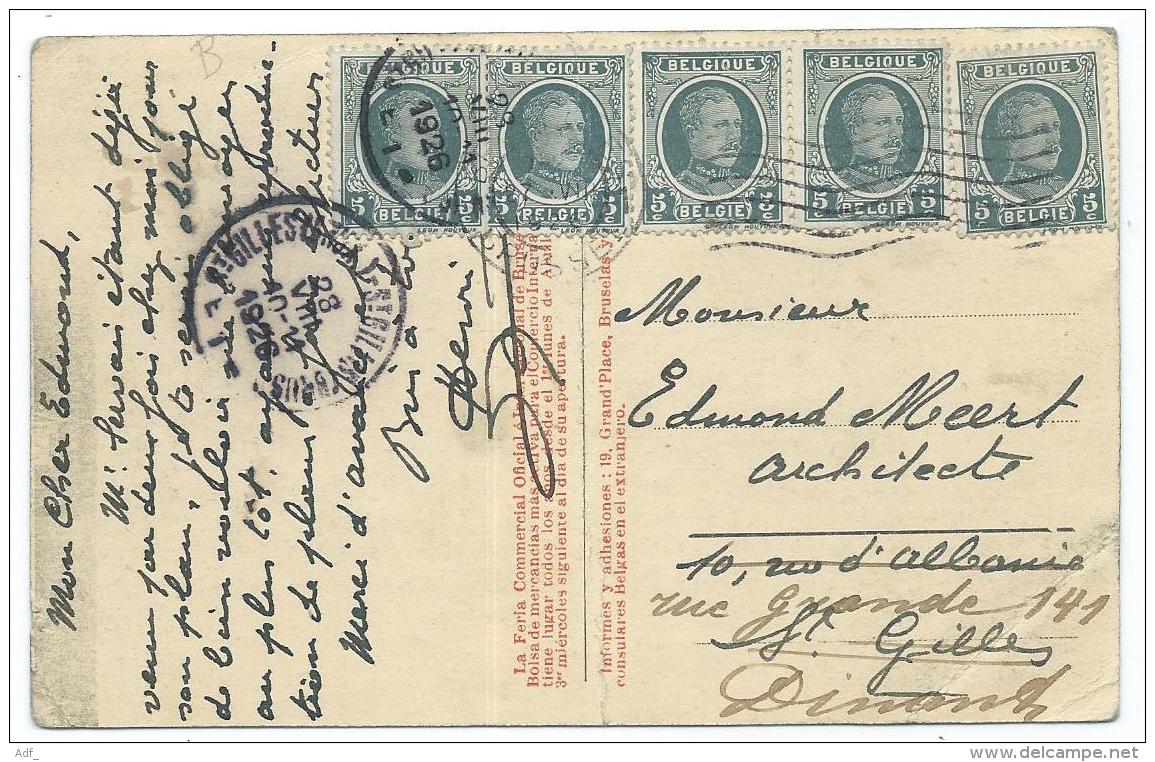 B
Mon Cher Edmond,
Mr Servais étant déjà
venu par deux fois chez moi pour
son plan, je te serais obligé
de bien vouloir me l'envoyer
au plus tôt,
tion de plans pour
Merci d'avance
Bien à toi
Henri
BELGIQUE
BELGIQUE
BELGIQUE
BELGIQUE
BELGIQUE
5c BELGIE 5c
5c BELGIE 5c
5c BELGIE 5c
5c BELGIE 5c
5c BELGIE 5c
28
VIII
1926
ST GILLES
28
VIII
10-11
1926
La Feria Commercial Oficial é In
Bolsa de mercancias mas activa para el Comercio Interna
tiene lugar todos los años desde el 1er lunes de Abril
3er miércoles siguiente al dia de su apertura.
Informes y adhesiones : 19, Grand'Place, Bruselas y
consulares Belgas en el extranjero.
Monsieur
Edmond Meert
architecte
10, rue d'Albanie
rue Grande 141
St. Gilles
Dinant
Adf_
delcampe.net